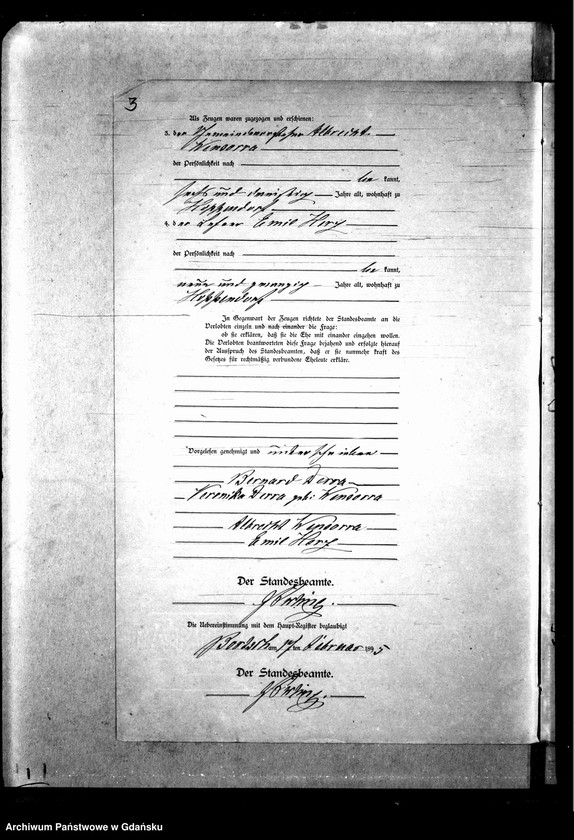 3
Als Zeugen waren zugezogen und erschienen:
3. der Gemeindevorsteher Albrecht
Wendorra
der Persönlichkeit nach
be kannt,
sechs und dreißig Jahre alt, wohnhaft zu
Hoppendorf
4. der Emil Herz
der Persönlichkeit nach
be kannt,
neun und zwanzig Jahre alt, wohnhaft zu
Hoppendorf
In Gegenwart der Zeugen richtete der Standesbeamte an die
Verlobten einzeln und nach einander die Frage:
ob sie erklären, daß sie die Ehe mit einander eingehen wollen.
Die Verlobten beantworteten diese Frage bejahend und erfolgte hierauf
der Ausspruch des Standesbeamten, daß er sie nunmehr kraft des
Gesetzes für rechtmäßig verbundene Eheleute erkläre.
Vorgelesen genehmigt und unterschrieben
Bernard Derra
Veronika Derra geb: Wendorra
Albrecht Wendorra
Emil Herz
Der Standesbeamte.
Die Uebereinstimmung mit dem Haupt-Register beglaubigt
am ten Februar 1895
Der Standesbeamte.
Archiwum Państwowe w Gdańsku